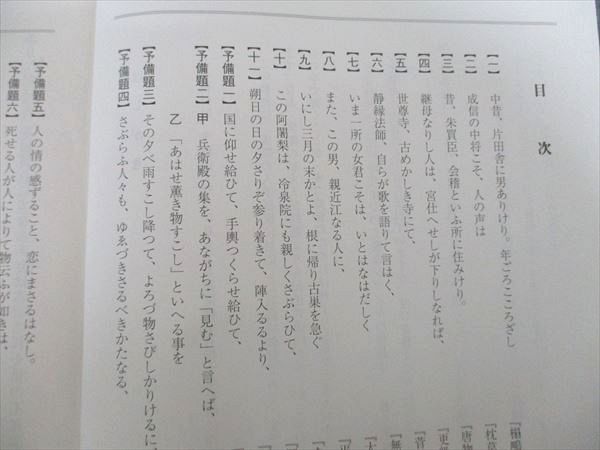 目次
【一】 中昔、片田舎に男ありけり。年ごろこころざし 『榻鴫
【二】 成信の中将こそ、人の声は 『枕草
【三】 昔、朱買臣、会稽といふ所に住みけり。 『唐物
【四】 継母なりし人は、宮仕へせしが下りしなれば、 『更級
【五】 世尊寺、古めかしき寺にて、 『菅
【六】 静縁法師、自らが歌を語りて言はく、 『無
【七】 いま一所の女君こそは、いとはなはだしく 『大
【八】 また、この男、親近江なる人に、 『平
【九】 いにし三月の末かとよ、根に帰り古巣を急ぐ
【十】 この阿闍梨は、冷泉院にも親しくさぶらひて、
【十一】 朔日の日の夕さりぞ参り着きて、陣入るるより、
【予備題一】 国に仰せ給ひて、手輿つくらせ給ひて、
【予備題二】 甲 兵衛殿の集を、あながちに「見む」と言へば、
乙 「あはせ薫き物すこし」といへる事を
【予備題三】 その夕べ雨すこし降つて、よろづ物さびしかりけるに、
【予備題四】 さぶらふ人々も、ゆゑづきさるべきかたなる、
【予備題五】 人の情の感ずること、恋にまさるはなし。
【予備題六】 死せる人が人によりて物云ふが如きは、